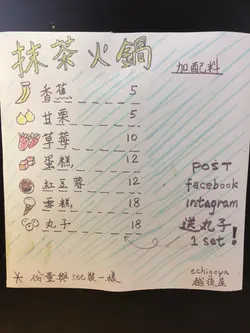 抹茶火鍋
加配料
香蕉 5
甘栗 5
草莓 10
蛋糕 12
紅豆蓉 12
雪糕 18
丸子 18
post
facebook
intagram
送丸子
1 set!
echigoya
越後屋
* 份量與set裝一樣